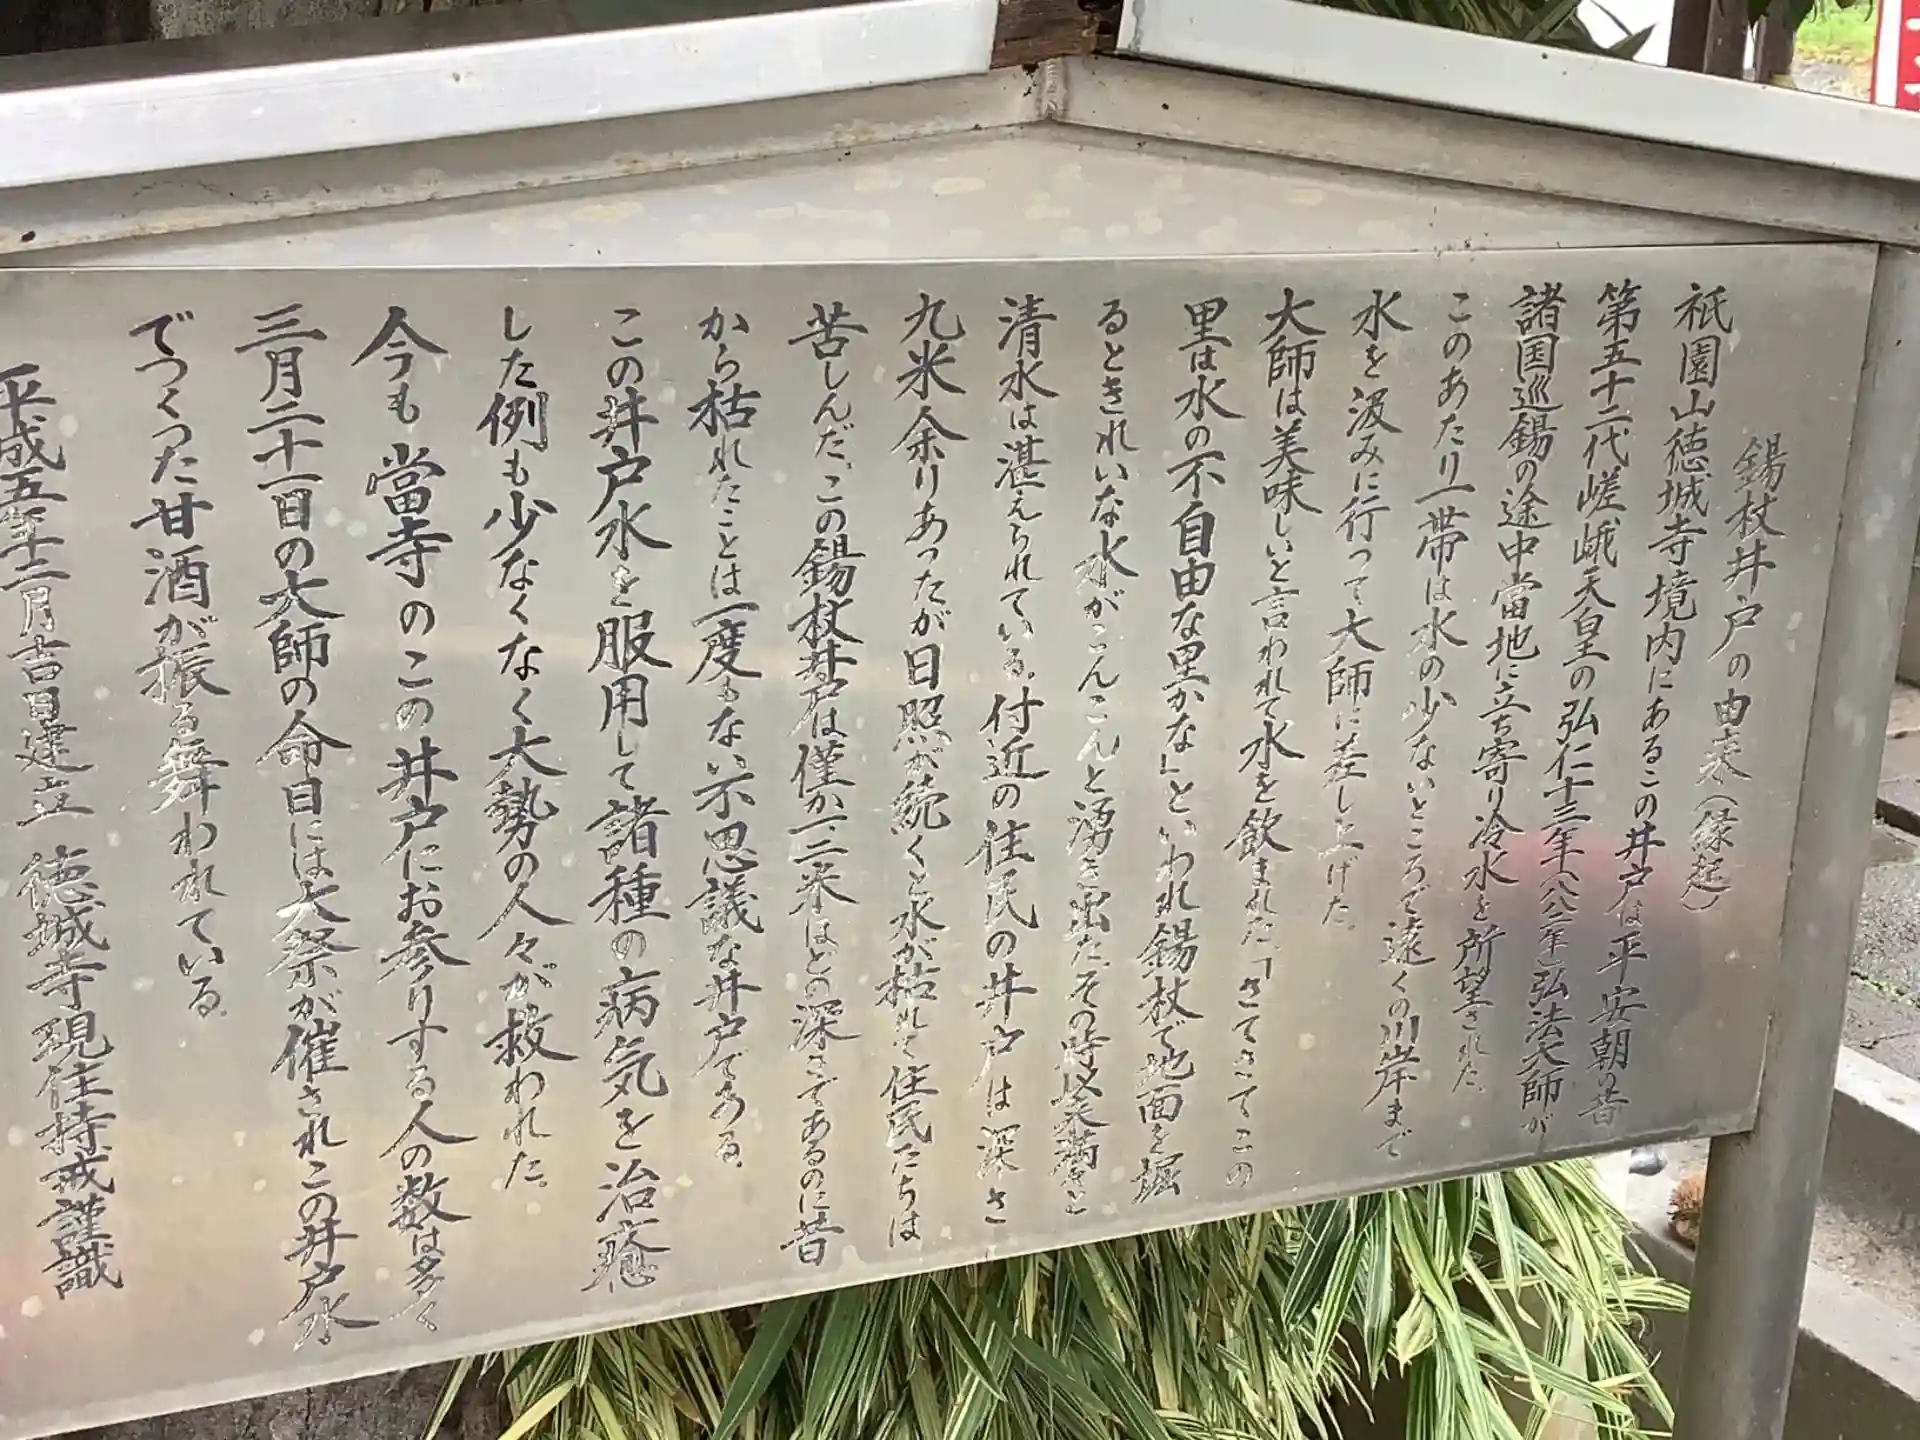 錫杖井戸の由来(縁起)
祇園山徳城寺境内にあるこの井戸は平安朝の昔
第五十二代嵯峨天皇の弘仁十三年(八二二年)弘法大師が
諸国巡錫の途中當地に立ち寄り冷水を所望された。
このあたり一帯は水の少ないところで遠くの川岸まで
水を汲みに行って大師に差し上げた。
大師は美味しいと言われて水を飲まれた。「さてさてこの
里は水の不自由な里かな」といわれ錫杖で地面を堀
るときれいな水がこんこんと湧き出た。その時以来満々と
清水は湛えられている。付近の住民の井戸は深さ
九米余りあったが日照が続くと水が枯れて住民たちは
苦しんだ。この錫杖井戸は僅か一、二米ほどの深さであるのに昔
から枯れたことは一度もない不思議な井戸である。
この井戸水を服用して諸種の病気を治癒
した例も少なくなく大勢の人々が救われた。
今も當寺のこの井戸にお参りする人の数は多く
三月二十一日の大師の命日には大祭が催されこの井戸水
でつくった甘酒が振る舞われている。
平成五年十二月吉日建立 徳城寺現住持戒謹識